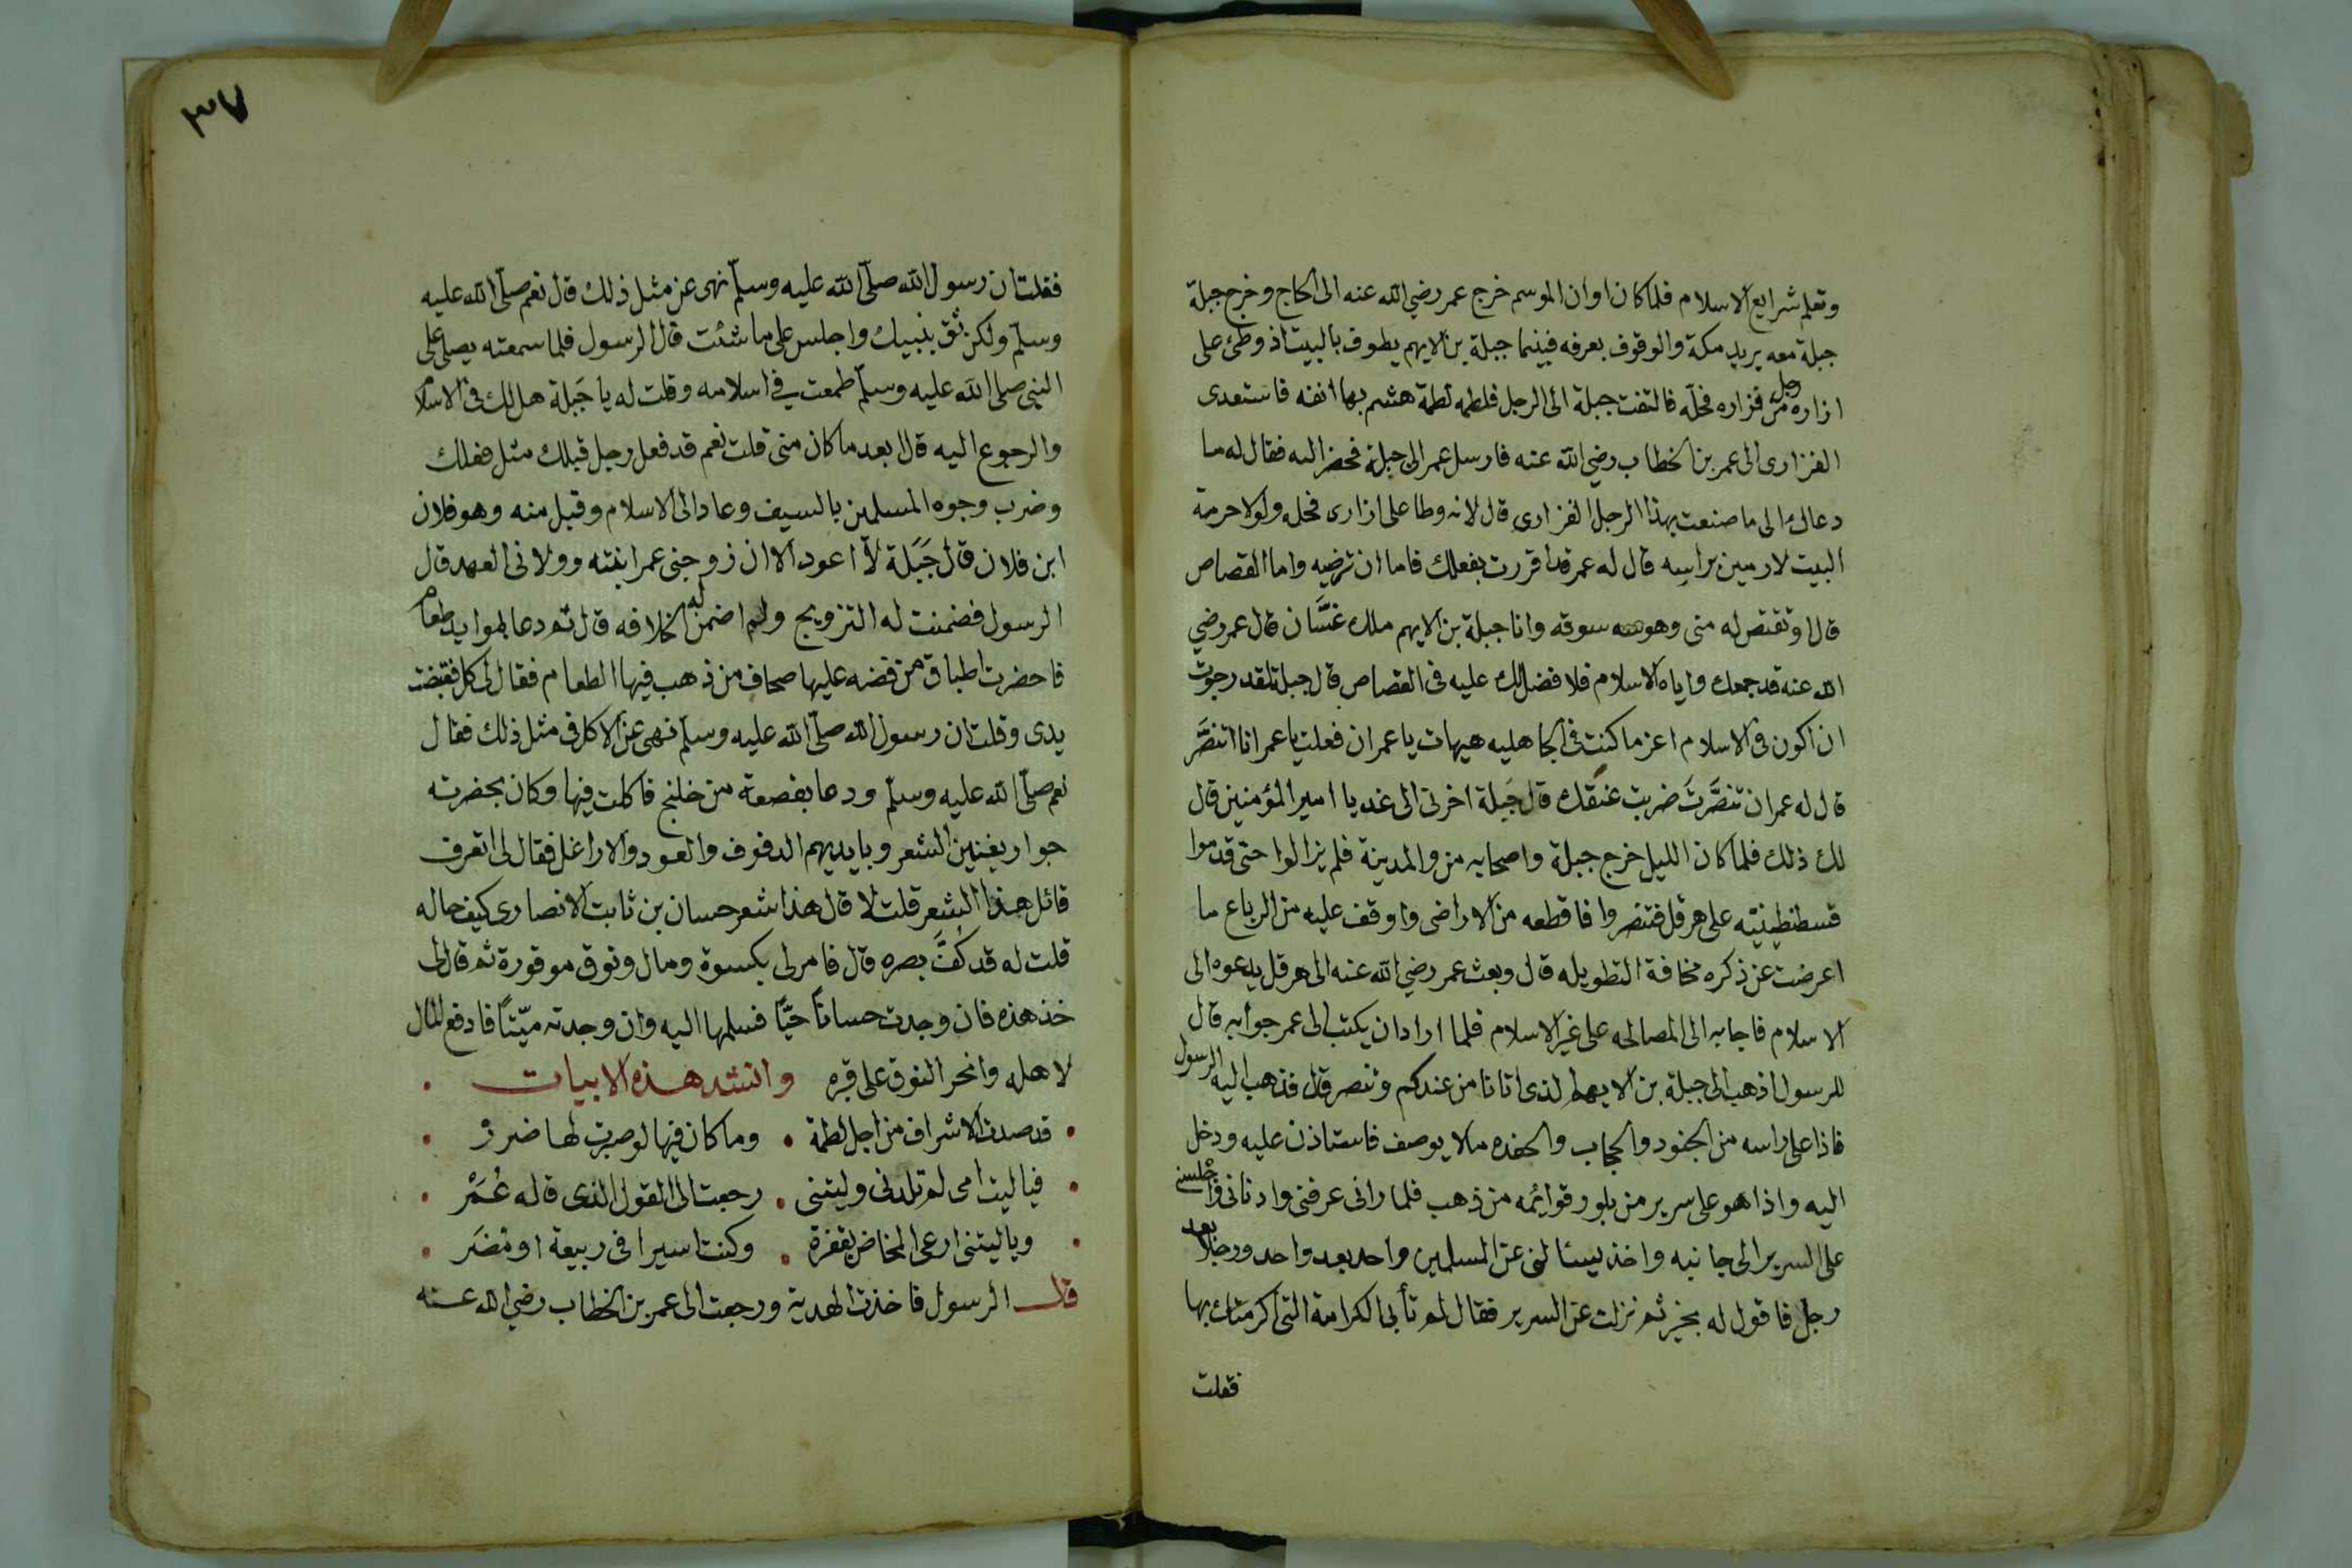 وتعلم شرايع الاسلام فلما كان اوان الموسم خرج عمر رضي الله عنه الى الحاج وخرج جبلة
جبلة معه يريد مكة والوقوف بعرفه فبينما جبلة بن الايهم يطوف بالبيت اذ وطئ على
ازاره رجل من فزاره فحله فالتفت جبلة الى الرجل فلطمه لطمة هشم بها انفه فاستعدى
الفزارى الى عمر بن الخطاب رضي الله عنه فارسل عمر الى جبلة فحضر اليه فقال له ما
دعاك الى ما صنعت بهذا الرجل الفزارى قال لانه وطا على ازارى فحله ولولا حرمة
البيت لارمين براسه قال له عمر قد اقررت بفعلك فاما ان ترضيه واما القصاص
قال اوتقتص له منى وهو سوقه وانا جبلة بن الايهم ملك غسَّان قال عمر رضي
الله عنه قد جمعك واياه الاسلام فلا فضل لك عليه فى القصاص قال جبلة لقد رجوت
ان اكون فى الاسلام اعز ما كنت فى الجاهليه هيهات يا عمر ان فعلت يا عمر انا اتنصَّر
قال له عمر ان تنصَّرتَ ضربت عنقك قال جَبلة اخرنى الى غد يا امير المؤمنين قال
لك ذلك فلما كان الليل خرج جبلة واصحابه من والمدينة فلم يزالوا حتى قدموا
قسطنطينيّه على هرقل فتنصروا فاقطعه من الاراضى واوقف عليه من الرباع ما
اعرضت عن ذكره مخافة التطويله قال وبعث عمر رضي الله عنه الى هرقل يدعوه الى
الاسلام فاجابه الى المصالحه على غير الاسلام فلما اراد ان يكتب الى عمر جوابه قال
للرسول اذهب الى جبلة بن الايهم الذى اتانا من عندكم وتنصر قال فذهب اليه الرسول
فاذا على راسه من الجنود والحجاب والحفده ما لا يوصف فاستاذن عليه ودخل
اليه واذا هو على سرير من بلور قوائمه من ذهب فلما رانى عرفنى وادنانى واجلسنى
على السرير الى جانبه واخذ يسئالنى عن المسلمين واحد بعد واحد ورجلا بعد
رجل فاقول له بخير ثم نزلت عن السرير فقال لم تأبى الكرامة التى اكرمتك بها
فقلت
٣٧
فقلت ان رسول الله صلّى الله عليه وسلّم نهى عن مثل ذلك قال نعم صلّى الله عليه
وسلّم ولكن ثق بنبيك واجلس على ما شئت قال الرسول فلما سمعته يصلى على
النبى صلى الله عليه وسلّم طمعت فى اسلامه وقلت له يا جَبلة هل لك فى الاسلام
والرجوع اليه قال ابعد ما كان منى قلت نعم قد فعل رجل قبلك مثل فعلك
وضرب وجوه المسلمين بالسيف وعاد الى الاسلام وقبل منه وهو فلان
ابن فلان قال جَبَلة لا اعود الا ان زوجنى عمر ابنته وولانى العهد قال
الرسول فضمنت له التزويج ولم اضمن له الخلافه قال ثم دعا بموايد طعام
فاحضرت اطباق من فضه عليها صحاف من ذهب فيها الطعام فقال لى كل فقبضت
يدى وقلت ان رسول الله صلّى الله عليه وسلّم نهى عن الاكل فى مثل ذلك فقال
نعم صلّى الله عليه وسلم ودعا بقصعة من خلنج فاكلت فيها وكان بحضرته
جوار يغنين الشعر وبايديهم الدفوف والعود والاراغل فقال لى اتعرف
قائل هذا الشعر قلت لا قال هذا شعر حسان بن ثابت الانصارى كيف حاله
قلت له قد كُفَّ بصره قال فامر لى بكسوة ومال ونوق موقورة ثم قال لى
خذ هذه فان وجدت حسانًا حيًّا فسلمها اليه وان وجدته ميّتًا فادفع المال
لاهله وانحر النوق على قبره وانشد هذه الابيات
قد صدت الاشراف من اجل لطمة . وما كان فيها لو صبرت لها ضرر
فيا ليت امى لم تلدنى وليتنى . رجعت الى القول الذى قاله عُمَرْ
ويا ليتنى ارعى المخاض بقفرة . وكنت اسيرا فى ربيعة او مُضَر
قال الرسول فاخذت الهدية ورجعت الى عمر بن الخطاب رضي الله عنه